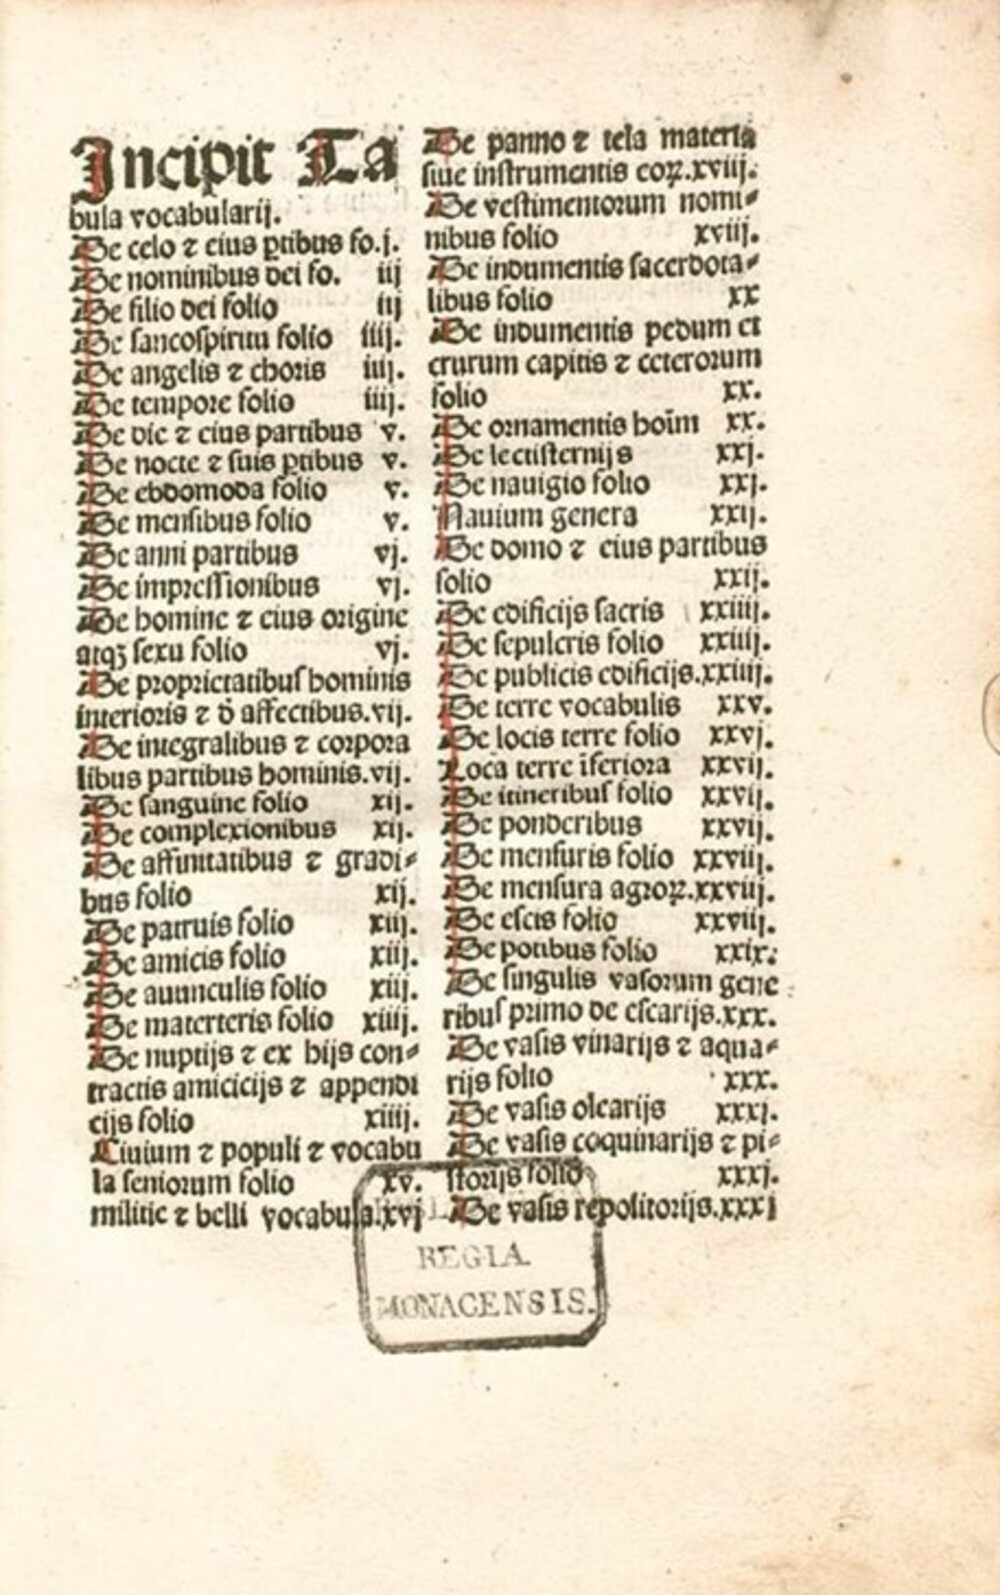 Incipit Ta
bula vocabularij.
De celo ⁊ eius ꝑtibus fo.j.
De nominibus dei fo. iij
De filio dei folio iij
De sancospiritu folio iiij.
De angelis ⁊ choris iiij.
De tempore folio iiij.
De die ⁊ eius partibus v.
De nocte ⁊ suis ꝑtibus v.
De ebdomoda folio v.
De mensibus folio v.
De anni partibus vj.
De impressionibus vj.
De homine ⁊ eius origine
atqꝫ sexu folio vj.
De proprietatibus hominis
interioris ⁊ d̄ affectibus.vij.
De integralibus ⁊ corpora
libus partibus hominis.vij.
De sanguine folio xij.
De complexionibus xij.
De affinitatibus ⁊ gradi⸗
bus folio xij.
De patruis folio xiij.
De amicis folio xiij.
De auunculis folio xiij.
De materteris folio xiiij.
De nuptijs ⁊ ex hijs con⸗
tractis amicicijs ⁊ appendi
cijs folio xiiij.
Ciuium ⁊ populi ⁊ vocabu
la seniorum folio xv.
militie ⁊ belli vocabula.xvj
De panno ⁊ tela materia
siue instrumentis coꝝ.xviij.
De vestimentorum nomi⸗
nibus folio xviij.
De indumentis sacerdota⸗
libus folio xx
De indumentis pedum et
crurum capitis ⁊ ceterorum
folio xx.
De ornamentis hoīm xx.
De lectisternijs xxj.
De nauigio folio xxj.
Nauium genera xxij.
De domo ⁊ eius partibus
folio xxij.
De edificijs sacris xxiiij.
De sepulcris folio xxiiij.
De publicis edificijs.xxiiij.
De terre vocabulis xxv.
De locis terre folio xxvj.
Loca terre īferiora xxvij.
De itineribus folio xxvij.
De ponderibus xxvij.
De mensuris folio xxviij.
De mensura agroꝝ.xxviij.
De escis folio xxviij.
De potibus folio xxix.
De singulis vasorum gene
ribus primo de escarijs.xxx.
De vasis vinarijs ⁊ aqua⸗
rijs folio xxx.
De vasis olearijs xxxj.
De vasis coquinarijs ⁊ pi⸗
storijs folio xxxj.
De vasis repositorijs.xxxj
REGIA
MONACENSIS.